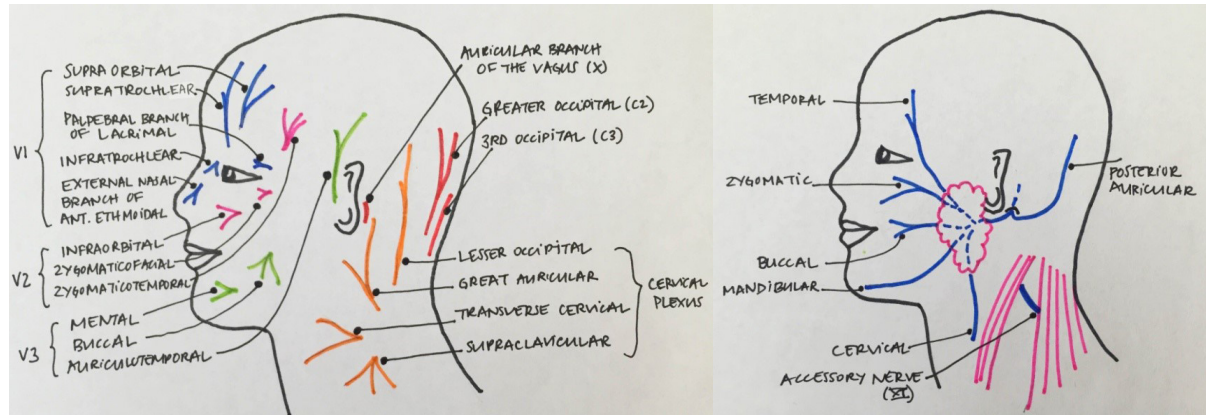 SUPRA ORBITAL
SUPRATROCHLEAR
PALPEBRAL BRANCH
OF LACRIMAL
V1
INFRATROCHLEAR
EXTERNAL NASAL
BRANCH OF
ANT. ETHMOIDAL
INFRAORBITAL
V2
ZYGOMATICOFACIAL
ZYGOMATICOTEMPORAL
MENTAL
V3
BUCCAL
AURICULOTEMPORAL
AURICULAR BRANCH
OF THE VAGUS (X)
GREATER OCCIPITAL (C2)
3RD OCCIPITAL (C3)
LESSER OCCIPITAL
GREAT AURICULAR
TRANSVERSE CERVICAL
SUPRACLAVICULAR
CERVICAL
PLEXUS
TEMPORAL
ZYGOMATIC
BUCCAL
MANDIBULAR
CERVICAL
ACCESSORY NERVE
(XI)
POSTERIOR
AURICULAR